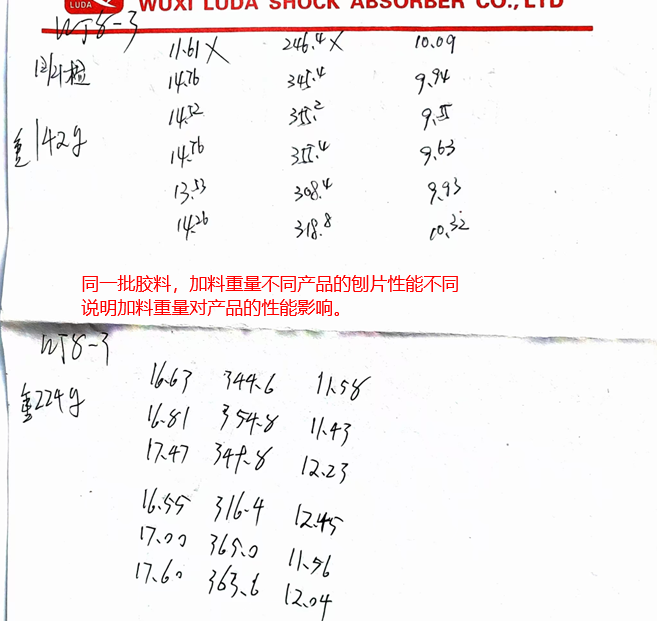 LUDA WUXI LUDA SHOCK ABSORBER CO., LTD
WJ8-3
11.61 × 246.4 × 10.09
14.76 345.4 9.94
14.52 355.2 9.55
重142g
14.76 355.4 9.63
13.53 308.4 9.93
14.26 318.8 10.32
同一批胶料，加料重量不同产品的刨片性能不同
说明加料重量对产品的性能影响。
WJ8-3
重224g
16.63 344.6 11.58
16.81 354.8 11.43
17.47 349.8 12.23
16.55 316.4 12.45
17.00 365.0 11.56
17.60 363.6 12.04